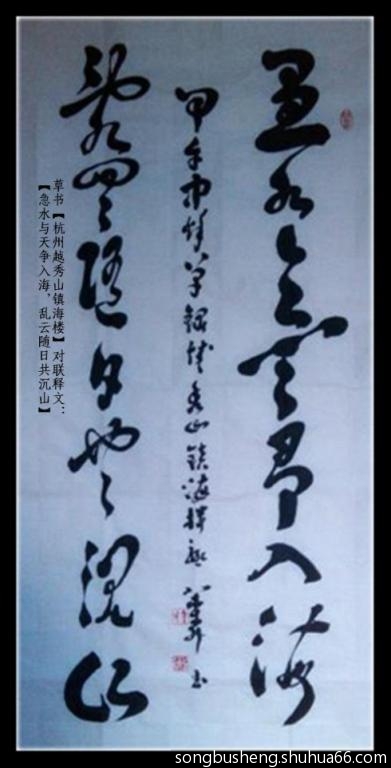 急水与天争入海
甲午中秋 秀山鎮海樓聯 书
乱云随日共沉山
草书【杭州越秀山镇海楼】对联释文：
【急水与天争入海，乱云随日共沉山】
songbusheng.shuhua66.com